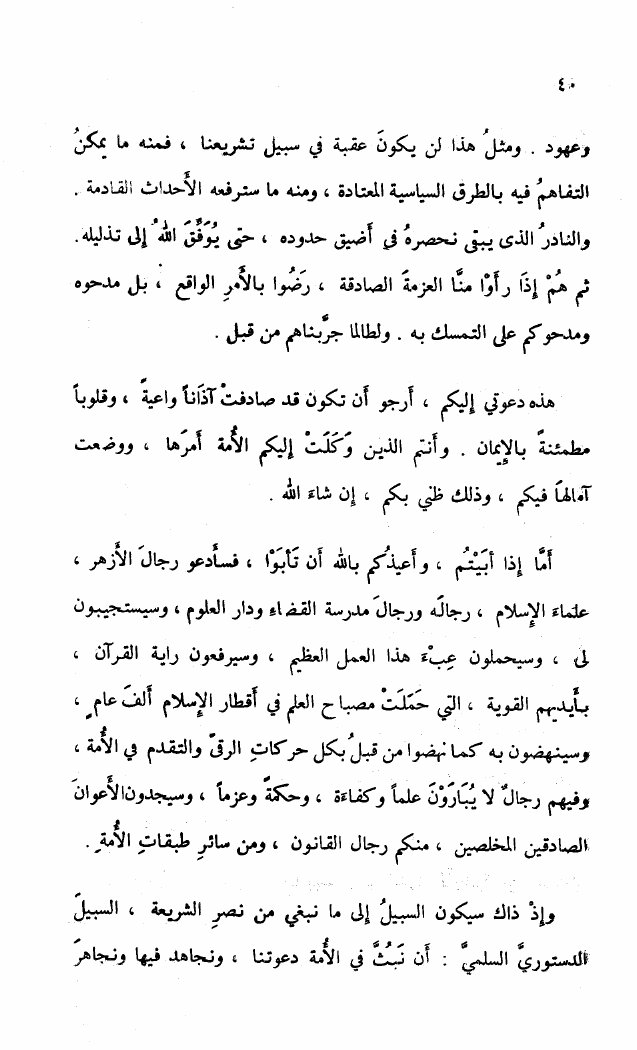 ٤٠
وعهود . ومثلُ هذا لن يكونَ عقبة في سبيل تشريعنا ، فمنه ما يمكنُ
التفاهمُ فيه بالطرق السياسية المعتادة ، ومنه ما سترفعه الأحداث القادمة .
والنادرُ الذى يبقى نحصرهُ في أضيق حدوده ، حتى يُوَفِّقَ اللهُ إلى تذليله.
ثم هُمْ إذَا رأوْا منَّا العزمةَ الصادقة ، رَضُوا بالأَمرِ الواقع ، بل مدحوه
ومدحوكم على التمسك به . ولطالما جرَّبناهم من قبل .
هذه دعوتي إليكم ، أرجو أن تكون قد صادفتْ آذَاناً واعيةً ، وقلوباً
مطمئنةً بالإيمان . وأنتم الذين وَكَلَتْ إليكم الأُمة أمرَها ، ووضعت
آمَالهَا فيكم ، وذلك ظني بكم ، إن شاءَ الله .
أمَّا إذا أبَيْتُم ، وأعيذُكم بالله أن تَأبَوْا ، فسأدعو رجالَ الأزهر ،
علماءَ الإسلام ، رجالَه ورجالَ مدرسة القضاء ودار العلوم ، وسيستجيبون
لى ، وسيحملون عِبْءَ هذا العمل العظيم ، وسيرفعون راية القرآن ،
بأيديهم القوية ، التي حَمَلَتْ مصباح العلم في أقطار الإسلام ألفَ عام ،
وسينهضون به كما نهضوا من قبلُ بكل حركاتِ الرقىّ والتقدم في الأُمة ،
وفيهم رجالٌ لا يُبَارَوْنَ علماً وكفاءَة ، وحكمةً وعزماً ، وسيجدون الأعوانَ
الصادقين المخلصين ، منكم رجال القانون ، ومن سائرِ طبقاتِ الأُمةِ .
وإذْ ذاك سيكون السبيلُ إلى ما نبغي من نصرِ الشريعة ، السبيلَ
الدستوريَّ السلميَّ : أن نَبُثَّ في الأُمة دعوتنا ، ونجاهد فيها ونجاهرَ